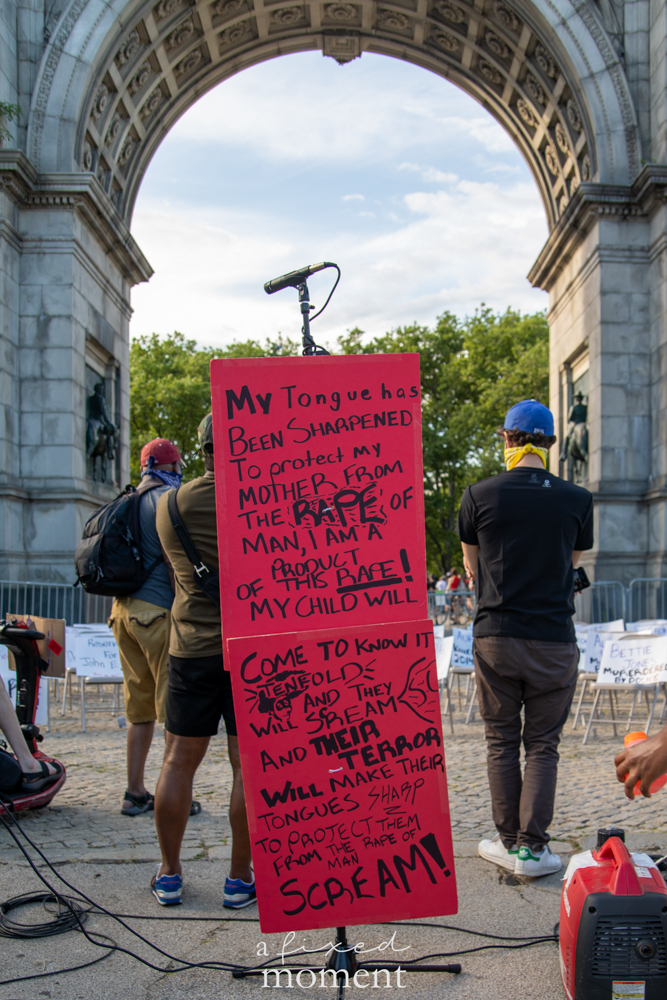 My Tongue has
BEEN SHARPENED
To protect my
MOTHER FROM
THE RAPE OF
MAN, I AM A
PRODUCT
OF THIS RAPE!
MY CHILD WILL
COME TO KNOW IT
TENFOLD
AND THEY
WILL SCREAM
AND THEIR
TERROR
WILL MAKE THEIR
TONGUES SHARP
TO PROTECT THEM
FROM THE RAPE OF
MAN
SCREAM!
Reserved
For
John
BETTIE
JONES
MURDERED
BY POLICE
a fixed
moment